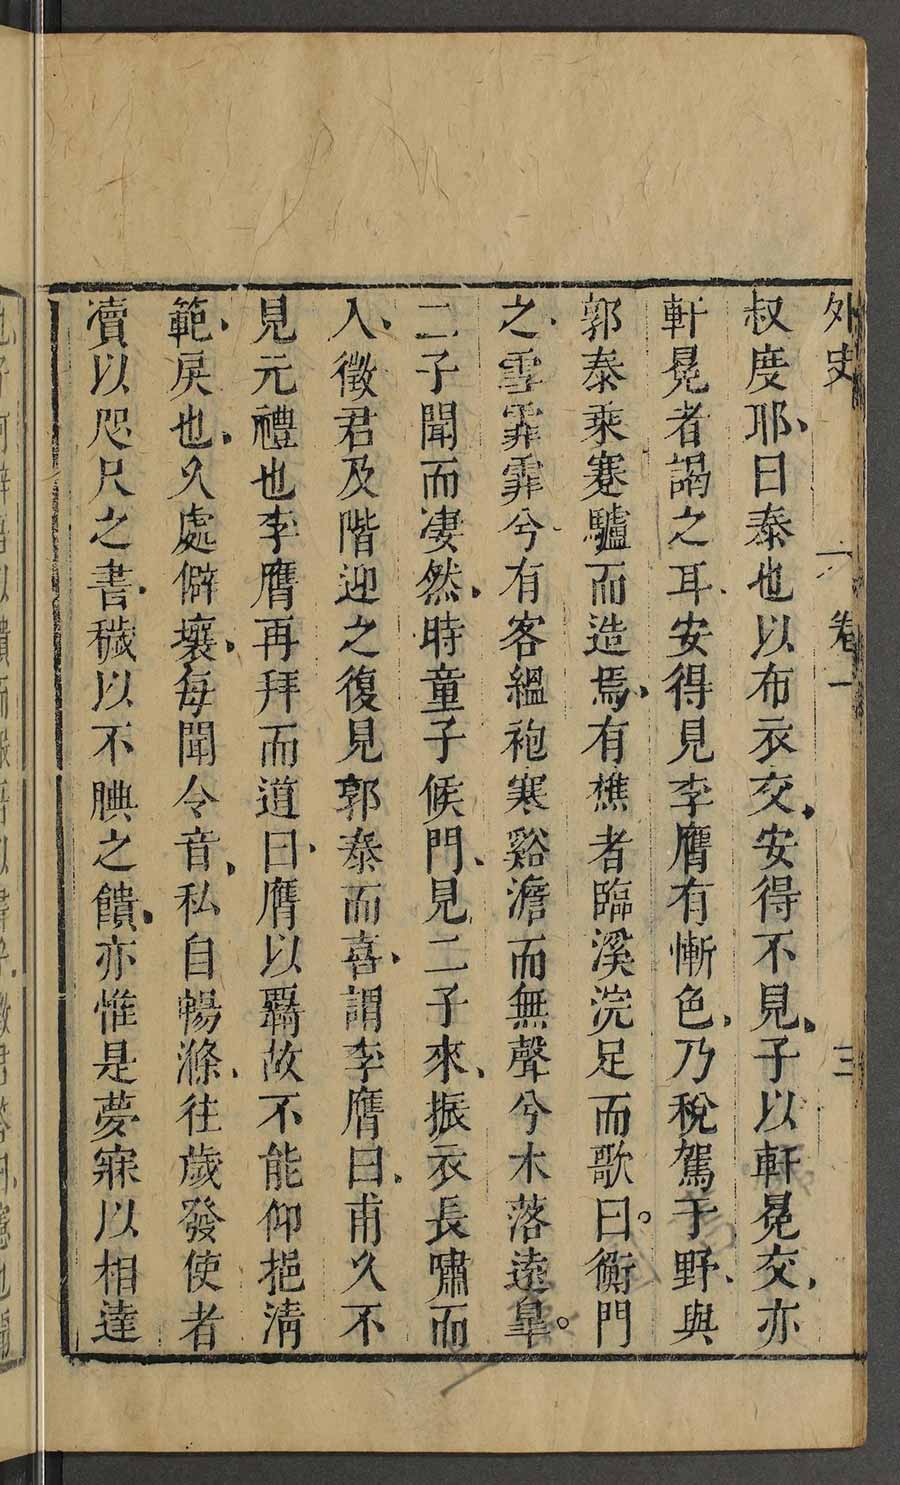 外史 卷一 三
叔度耶、曰泰也以布衣交、安得不見、子以軒冕交、亦
軒冕者謁之耳、安得見李膺有慚色、乃稅駕于野、與
郭泰乘蹇驢而造焉、有樵者臨溪浣足而歌曰。衡門
之、雪霏霏兮、有客縕袍寒谿澹而無聲兮木落遠臯。
二子聞而凄然、時童子候門、見二子來、振衣長嘯而
入、徵君及階迎之復見郭泰而喜、謂李膺曰、甫久不
見元禮也李膺再拜而道曰、膺以覊故不能仰挹清
範、戾也、久處僻壤、每聞令音、私自暢滌、往歲發使者
瀆以咫尺之書、穢以不腆之饋、亦惟是夢寐以相達